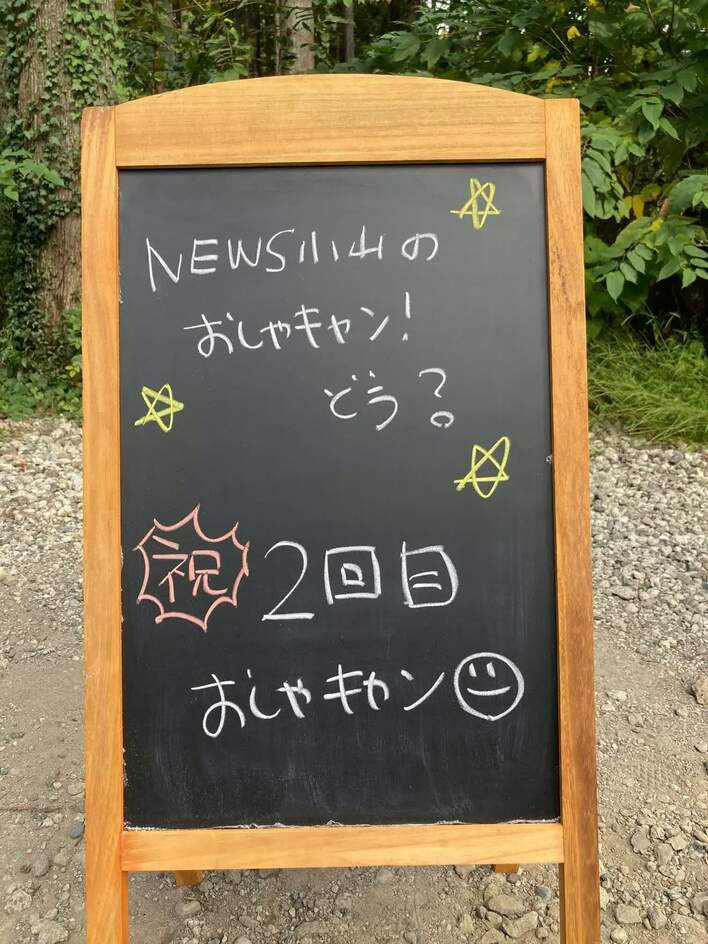 NEWS小山の
おしゃキャン!
どう?
祝 2回目
おしゃキャン